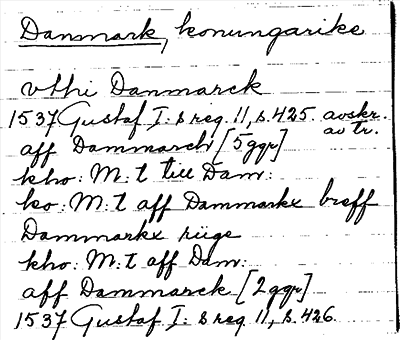 Danmark, konungarike
vthi Danmarck
1537 Gustaf I: s reg. 11, s. 425. avskr. av tr.
aff Dammarch [5 ggr]
kho: M: t till Dam:
ko: M: t aff Dammarkx breff
Dammarkx riige
kho: M: t aff Dam:
aff Dammarck [2 ggr]
1537 Gustaf I: s reg. 11, s. 426.